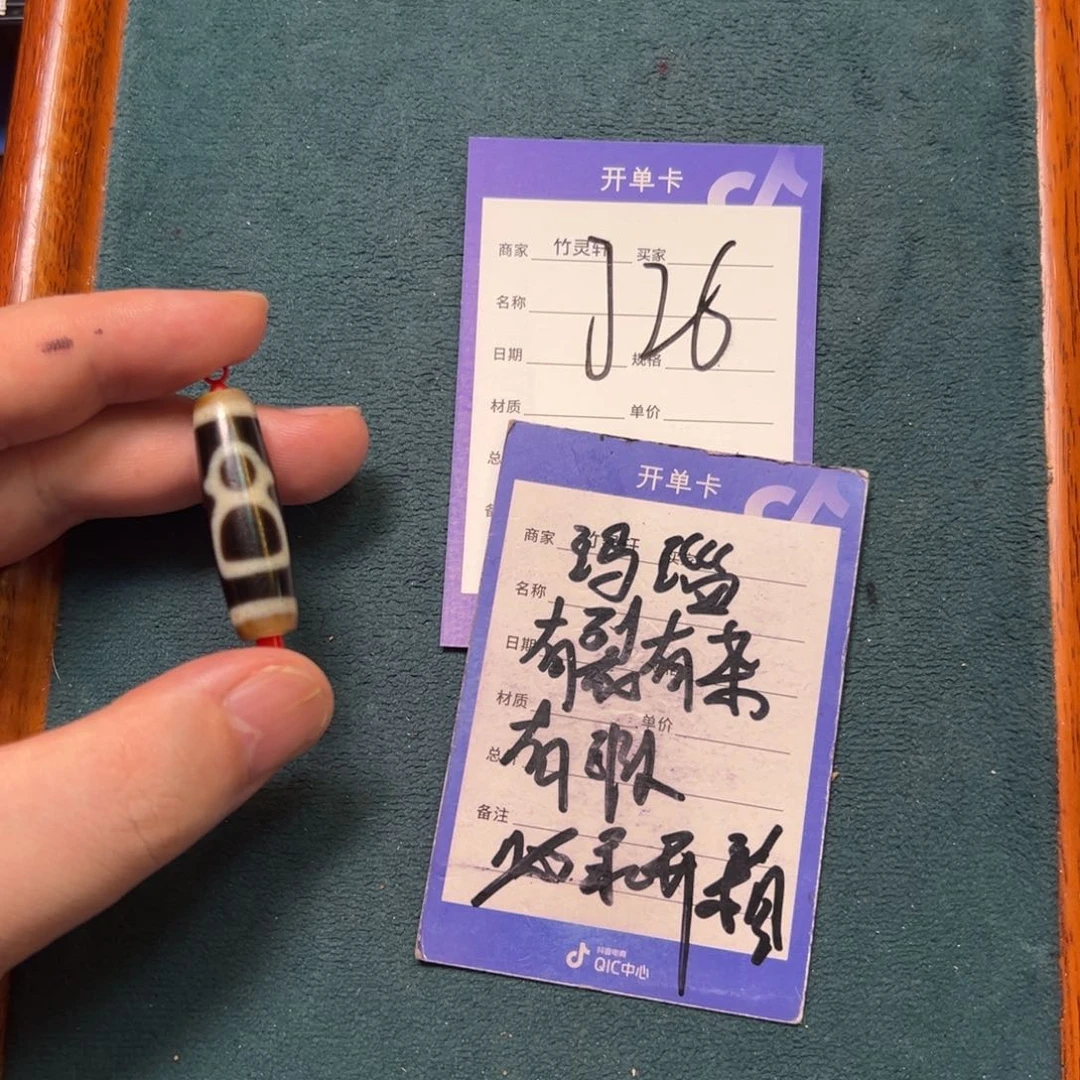 开单卡
商家 竹灵轩 买家
J26
名称
日期 规格
材质 单价
总
备
开单卡
商家
玛瑙
名称
有裂有染
日期
材质 单价
有瑕
总
备注
必录开视频
抖音电商
QIC中心